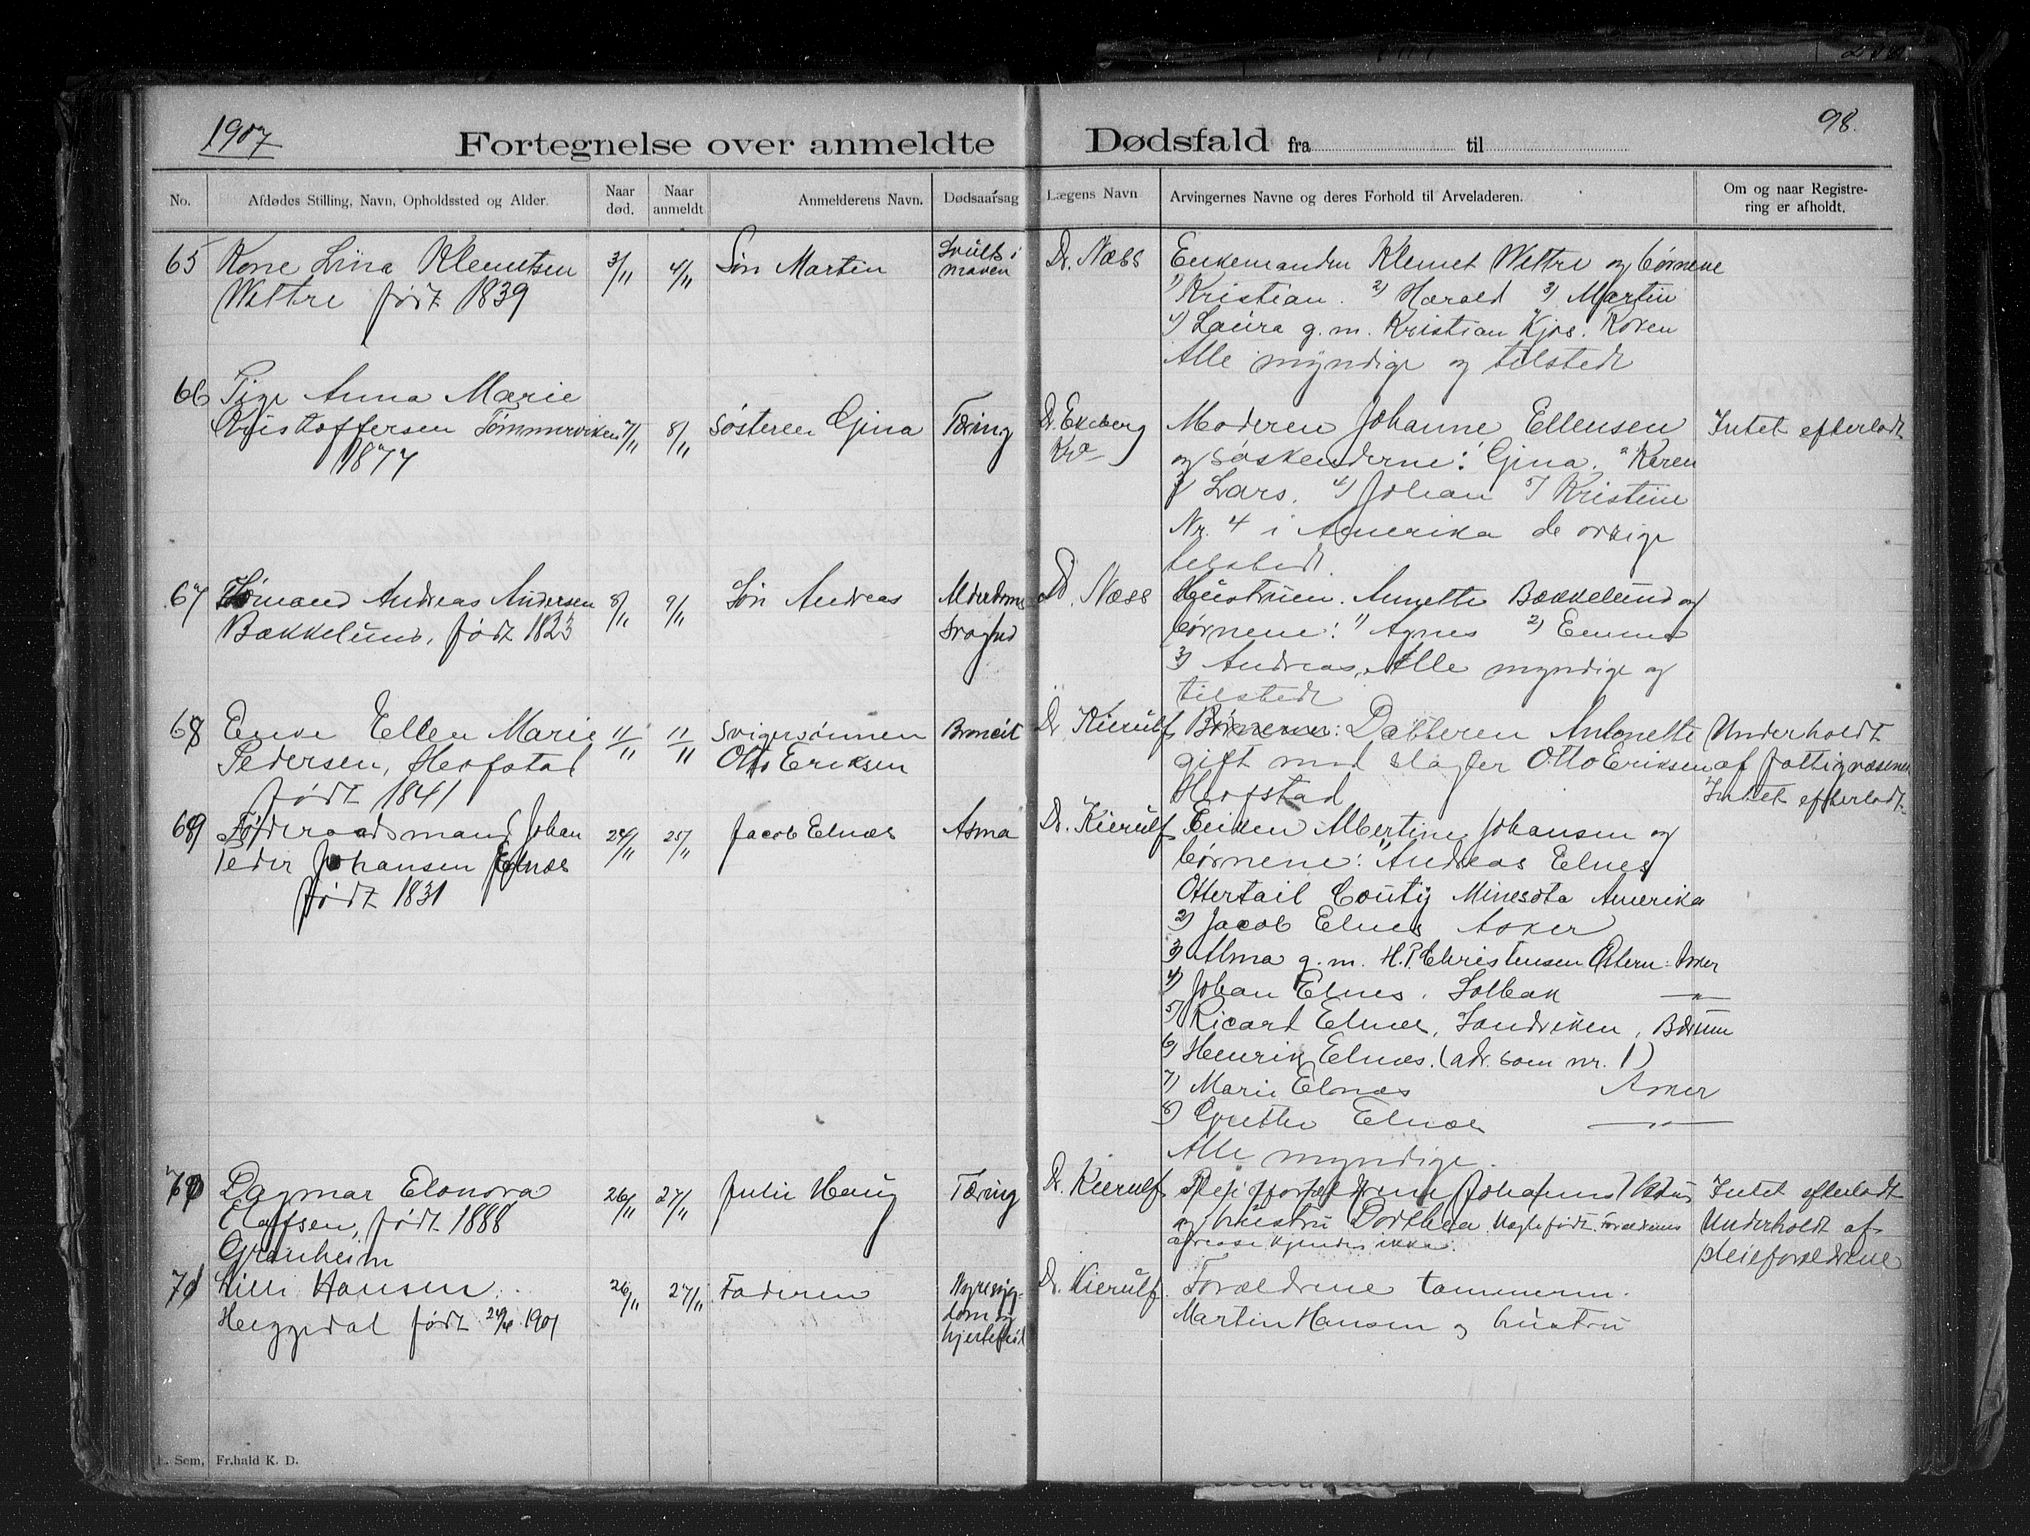 1907
98.
Fortegnelse over anmeldte Dødsfald fra til
No.
Afdødes Stilling, Navn, Opholdssted og Alder.
Naar død.
Naar anmeldt
Anmelderens Navn.
Dødsaarsag
Lægens Navn
Arvingernes Navne og deres Forhold til Arveladeren.
Om og naar Registrering er afholdt.
65 Kone Lina Klemetsen 3/11 4/11 Søn Martin Svulst i Dr. Næss Enkemanden Klemet Wettre og børnene
Wettre født 1839 maven 1) Kristian. 2) Harald 3) Martin
4) Laura g. m. Kristian Kjos. Røken
Alle myndige og tilstede
66 Pige Anna Marie
Kristoffersen Tømmerviken 7/11 8/11 Søsteren Gina Tæring Dr. Ekeberg Moderen Johanne Ellensen Intet efterladt
1877 Kra og søskenderne: Gina. 2 Karen
3) Lars. 4) Johan 5) Kristine
Nr. 4 i Amerika de øvrige
tilstede.
67 Andreas Andersen 8/11 9/11 Søn Andreas Alderdoms Dr. Næss Hustruen Annette Bækkelund og
Bækkelund, født 1823 svaghed børnene: 1) Agnes 2) Emma
3) Andreas, Alle myndige og
tilstede
68 Enke Ellen Marie 11/11 11/11 Svigersønnen Broncit Dr Kierulf Børnene: Datteren Antonette Underholdt
Pedersen, Hofstad Otto Eriksen gift med slagter Otto Eriksen af fattigvæsenet
født 1841 Hofstad Intet efterladt
69 Føderaadsmand Johan 24/11 25/11 Jacob Elnæs Asma Dr. Kierulf Enken Albertine Johansen og
Peder Johansen Elnæs børnene: 1) Andreas Elnes
født 1831 Ottertail Coutij Minesota Amerika
2) Jacob Elnes Asker
3) Alma g. m. H. P. Christensen Østern: Asker
4) Johan Elnes. Solbak —"—
5) Ricard Elnæs, Sandviken, Bærum
6) Henrik Elnæs. (adr. som nr. 1)
7) Marie Elnæs Asker
8) Grethe Elnæs —"—
Alle myndige.
70 Dagmar Elonora 26/11 27/11 Julie Haug Tæring Dr. Kierulf Pleiforældrene Johannes Intet efterladt
Elafsen, født 1888 og hustru Dorthea Uægte født Forældrenes Underholdt af
Granheim adresse kjendes ikke. pleieforældrene
71 Lilli Hansen 26/11 27/11 Faderen Nyresyg- Dr. Kierulf. Forældrene tømmerm.
Heggedal født 1901 dom og Martin Hansen og hustru
hjertefeil
E. Sem, Fr.hald K. D.